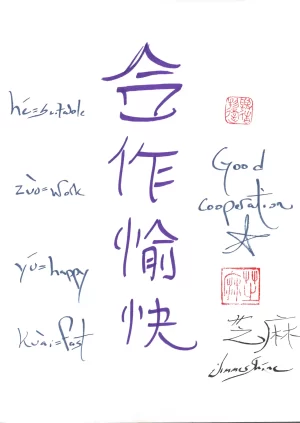 合作愉快
hé=suitable
zuò=work
yú=happy
Kuài=fast
Good
cooperation
芝麻